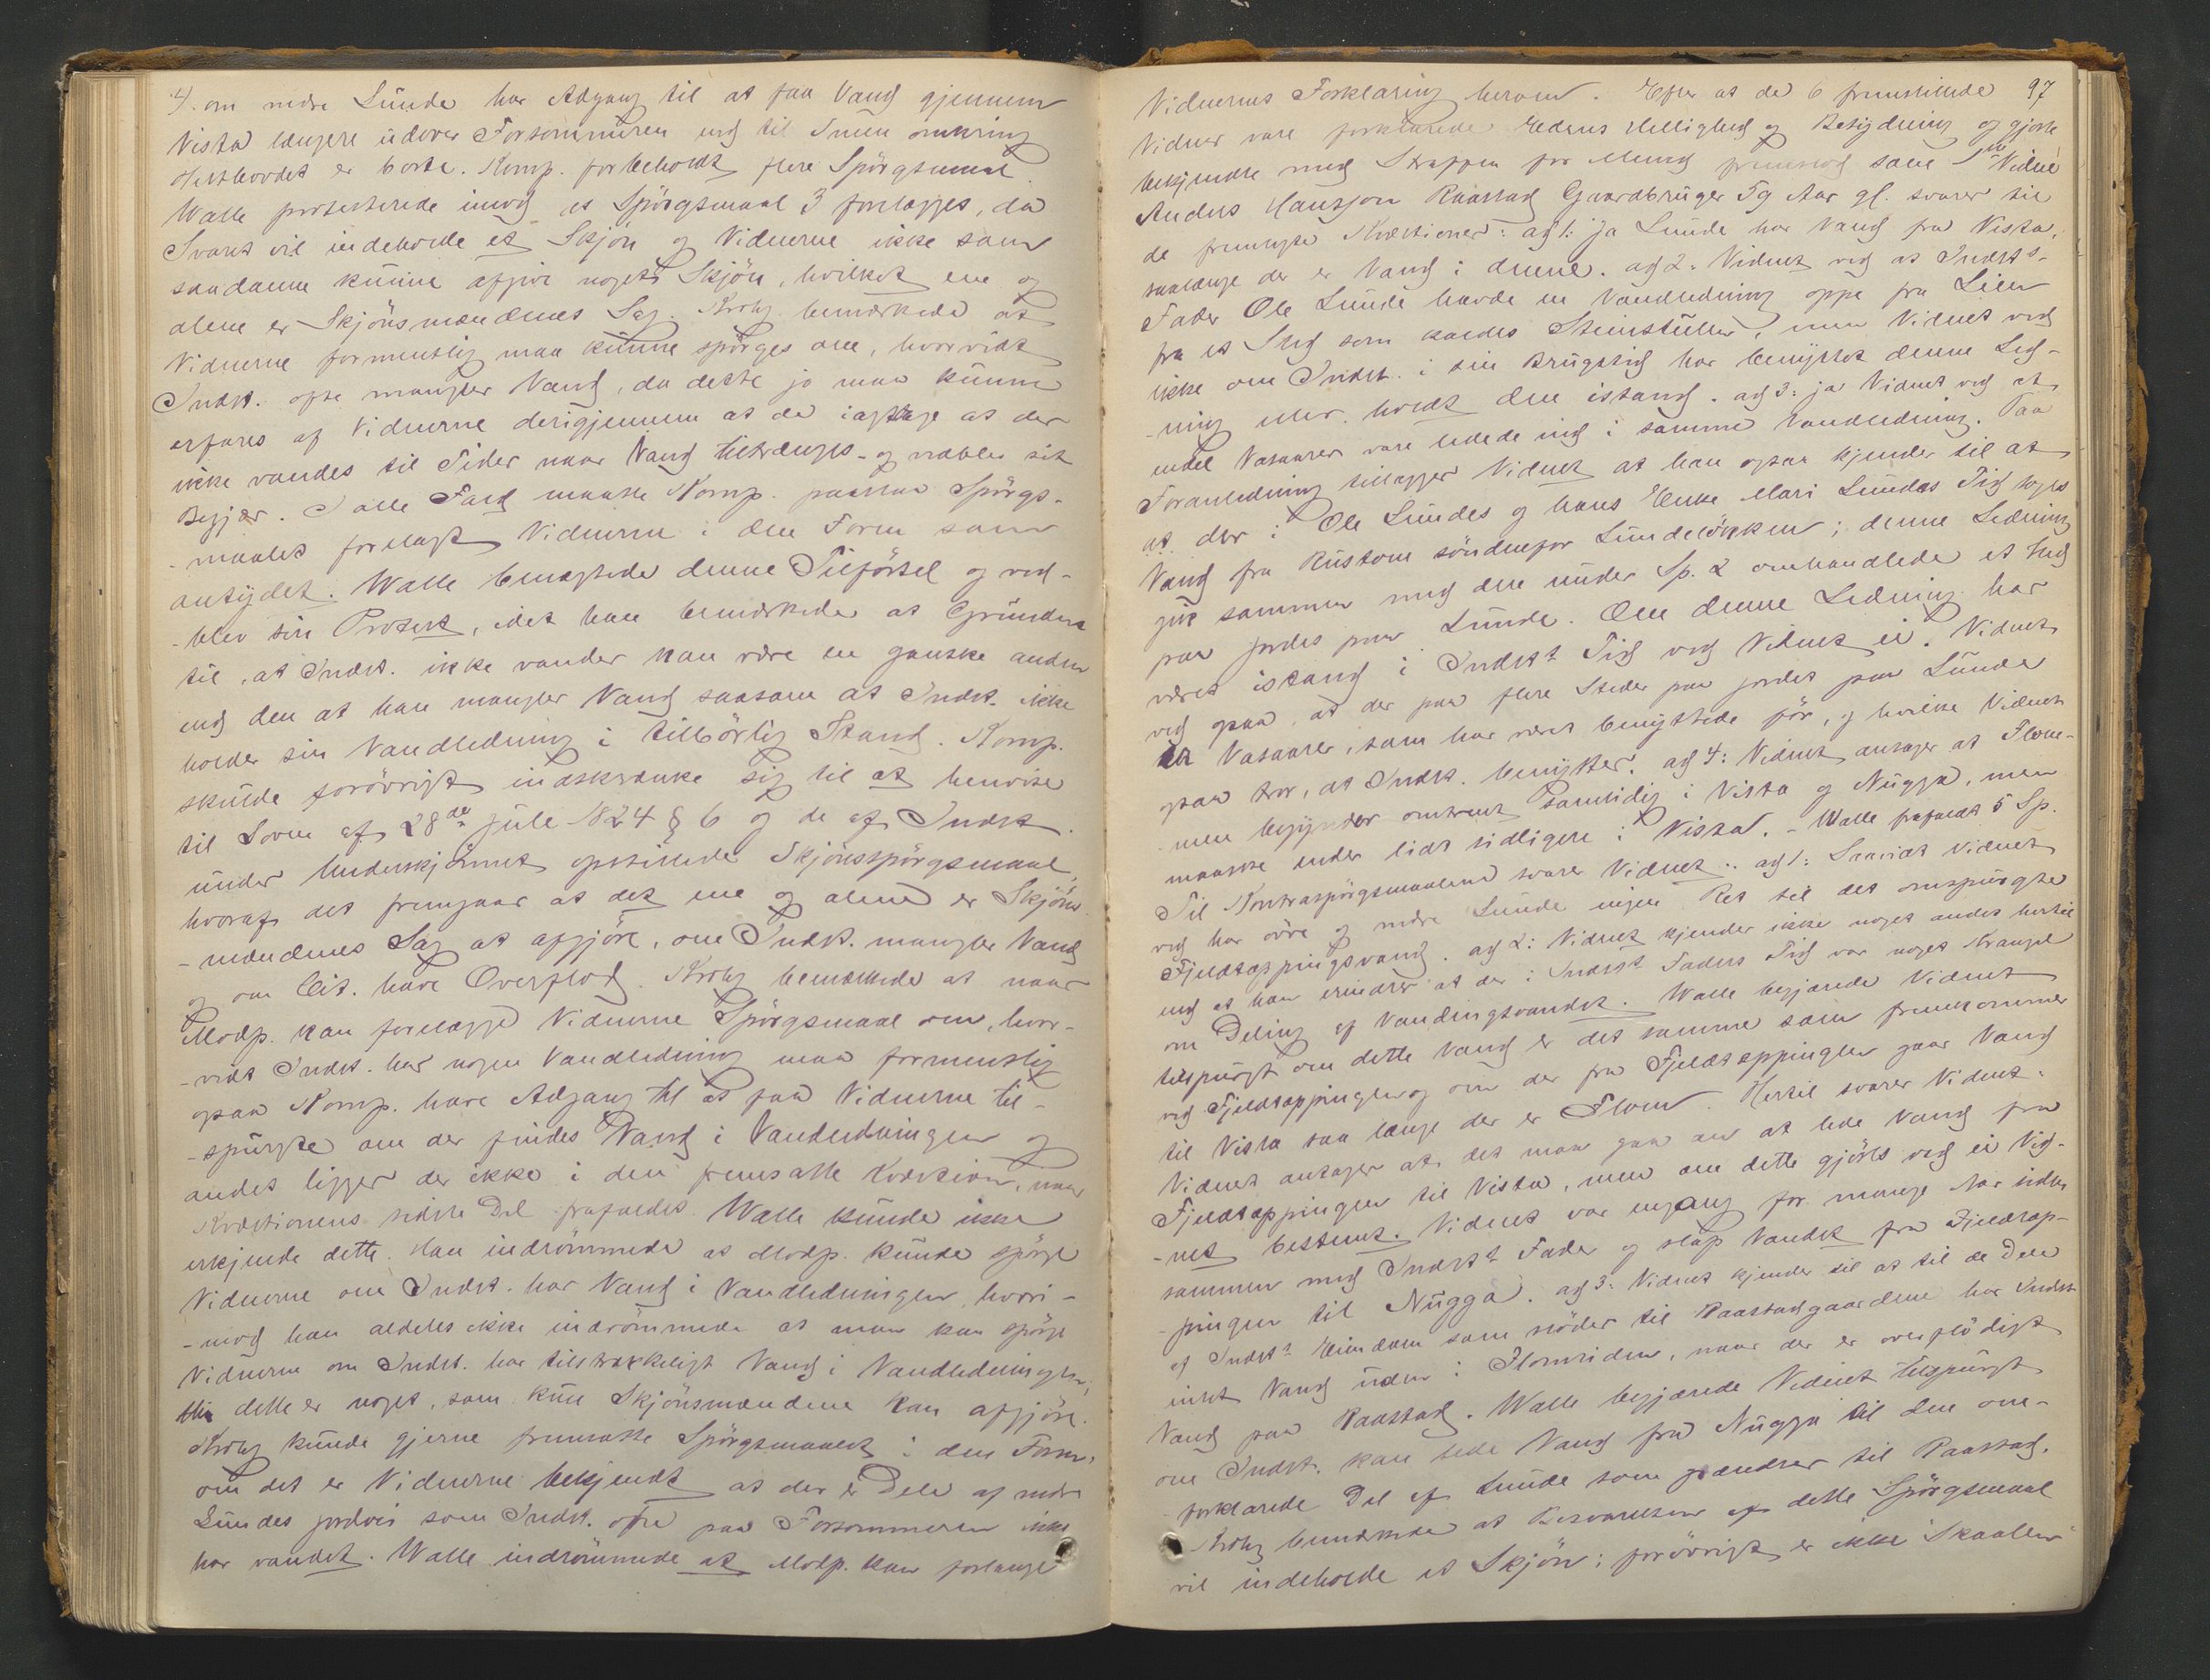 4). om nedre Lunde har Adgang til at faa Vand gjennem
Vista længere udover Forsommeren end til Snøen omkring
er borte. Komp. forbeholdt flere Spörgsmaal.
Walle protesterede imod at Spörgsmaal 3 forelægges, da
Svaret vil indeholde et Skjön og Vidnerne ikke som
saadanne kunne afgive noget Skjön, hvilket ene og
alene er Skjönsmændenes Sag. Krohg bemærkede at
Vidnerne formentlig maa kunne spörges om, hvorvidt
Indst. ofte mangler Vand, da dette jo maa kunne
erfares af Vidnerne derigjennem at de iagttage at der
ikke vandes til Tider naar Vand tiltrænges og nedlæ sit
Begjær. I alle Fald maatte Komp. paastaa Spörgs-
-maalet forelagt Vidnerne i den Form som
antydet. Walle benægtede denne Tilförsel og ved-
-blev sin Protest, idet han bemærkede at Grunden
til, at Indst. ikke vander kan være en ganske anden
end den at han mangler Vand saasom at Indst. ikke
holder sin Vandledning i tilbörlig Stand. Komp.
skulde forövrigt indskrænke sig til at henvise
til Loven af 28de Juli 1824 § 6 og de af Indst.
under Underskjönnet opstillede Skjönsspörgsmaal,
hvoraf det fremgaar at det ene og alene er Skjöns-
-mændenes Sag at afgjöre, om Indst. mangler Vand
og om Cit. have Overflod. Krohg bemærkede at naar
Modp. kan forelægge Vidnerne Spörgsmaal om, hvor-
-vidt Indst. har nogen Vandledning maa formentlig
ogsaa Komp. have Adgang til at faa Vidnerne til-
-spurgte om der findes Vand i Vandledningen og
andet ligger der ikke i den fremsatte Kvæstion, naar
Kvæstionens sidste Del frafaldes. Walle kunde ikke
erkjende dette. Han indrömmede at Modp. kunde spörge
Vidnerne om Indst. har Vand i Vandledningen, hvori-
-mod han aldeles ikke indrömmede at man kan spörge
Vidnerne om Indst. har tilstrækkeligt Vand i Vandledningen;
thi dette er noget, som kun Skjönsmændene kan afgjöre.
Krohg kunde gjerne fremsætte Spörgsmaalet i den Form,
om det er Vidnerne bekjendt at der er Dele af nedre
Lundes jordvei som Indst. ofte paa Forsommeren ikke
har vandet. Walle indrömmede at Modp. kan forlange
Vidnernes Forklaring herom. Efter at de 6 fremstillede 97
Vidner vare forklarede Edens Hellighed og Betydning og gjorte
bekjendte med Straffen for Mened fremstod som 1ste Vidne
Anders Hansson Raastad Gaardbruger 59 Aar gl. svarer til
de fremsatte Kvæstioner: ad 1: ja Lunde har Vand fra Vista,
saalænge der er Vand i denne. ad 2. Vidnet ved at Indst.s-
Fader Ole Lunde havde en Vandledning oppe fra Lien
fra et Sted som kaldes Steinstullen, men Vidnet ved
ikke om Indst. i sin Brugstid har benyttet denne Led-
-ning eller holdt den istand. ad 3: ja Vidnet ved at
endel Vasaarer vare ledede ind i samme Vandledning. Paa
Foranledning tillægger Vidnet at han ogsaa kjender til at
at der i Ole Lundes og hans Enke Mari Lundes Tid toges
Vand fra Rustom söndenfor Lundelökken; denne Ledning
gik sammen med den under Sp. 2 omhandlede et Sted
paa jordet paa Lunde. Om denne Ledning har
været istand i Indst.s Tid ved Vidnet ei. Vidnet
ved ogsaa, at der paa flere Steder paa jordet paa Lunde
er Vasaarer, som har været benyttede för, og hvilke Vidnet
ogsaa tror, at Indst. benytter. ad 4: Vidnet antager at Flom-
-men begynder omtrent samtidig i Vista og Nugga, men
maaske ender lidt tidligere i Vista. - Walle frafaldt 5 Sp.
Til Kontraspörgsmaalene svarer Vidnet: ad 1: Saavidt Vidnet
ved har övre og nedre Lunde ingen Ret til det omspurgte
Fjeldtappingsvand. ad 2: Vidnet kjender ikke noget andet hertil
end at han erindrer at der i Indst.s Faders Tid var noget Krangel
om Deling af Vandingsvandet. Walle begjærede Vidnet
tilspurgt om dette Vand er det samme som fremkommer
ved Fjeldtappingen og om der fra Fjeldtappingen gaar Vand
til Vista saa længe der er Flom. Hertil svarer Vidnet:
Vidnet antager at det maa gaa an at lede Vand fra
Fjeldtappingen til Vista, men om dette gjöres ved ei Vid-
-net bestemt. Vidnet var engang for mange Aar siden
sammen med Indst.s Fader og slap Vandet fra Fjeldtap-
-pingen til Nugga. ad 3: Vidnet kjender til at til de Dele
af Indst.s Eiendom som stöder til Raastadgaardene har Indst.
intet Vand uden i Flomtiden, naar der er overflödigt
Vand paa Raastad. Walle begjærede Vidnet tilspurgt
om Indst. kan lede Vand fra Nugga til den om-
-forklarede Del af Lunde som grændser til Raastad.
Krohg bemærkede at Besvarelsen af dette Spörgsmaal
vil indeholde et Skjön; forövrigt er ikke Skaallen